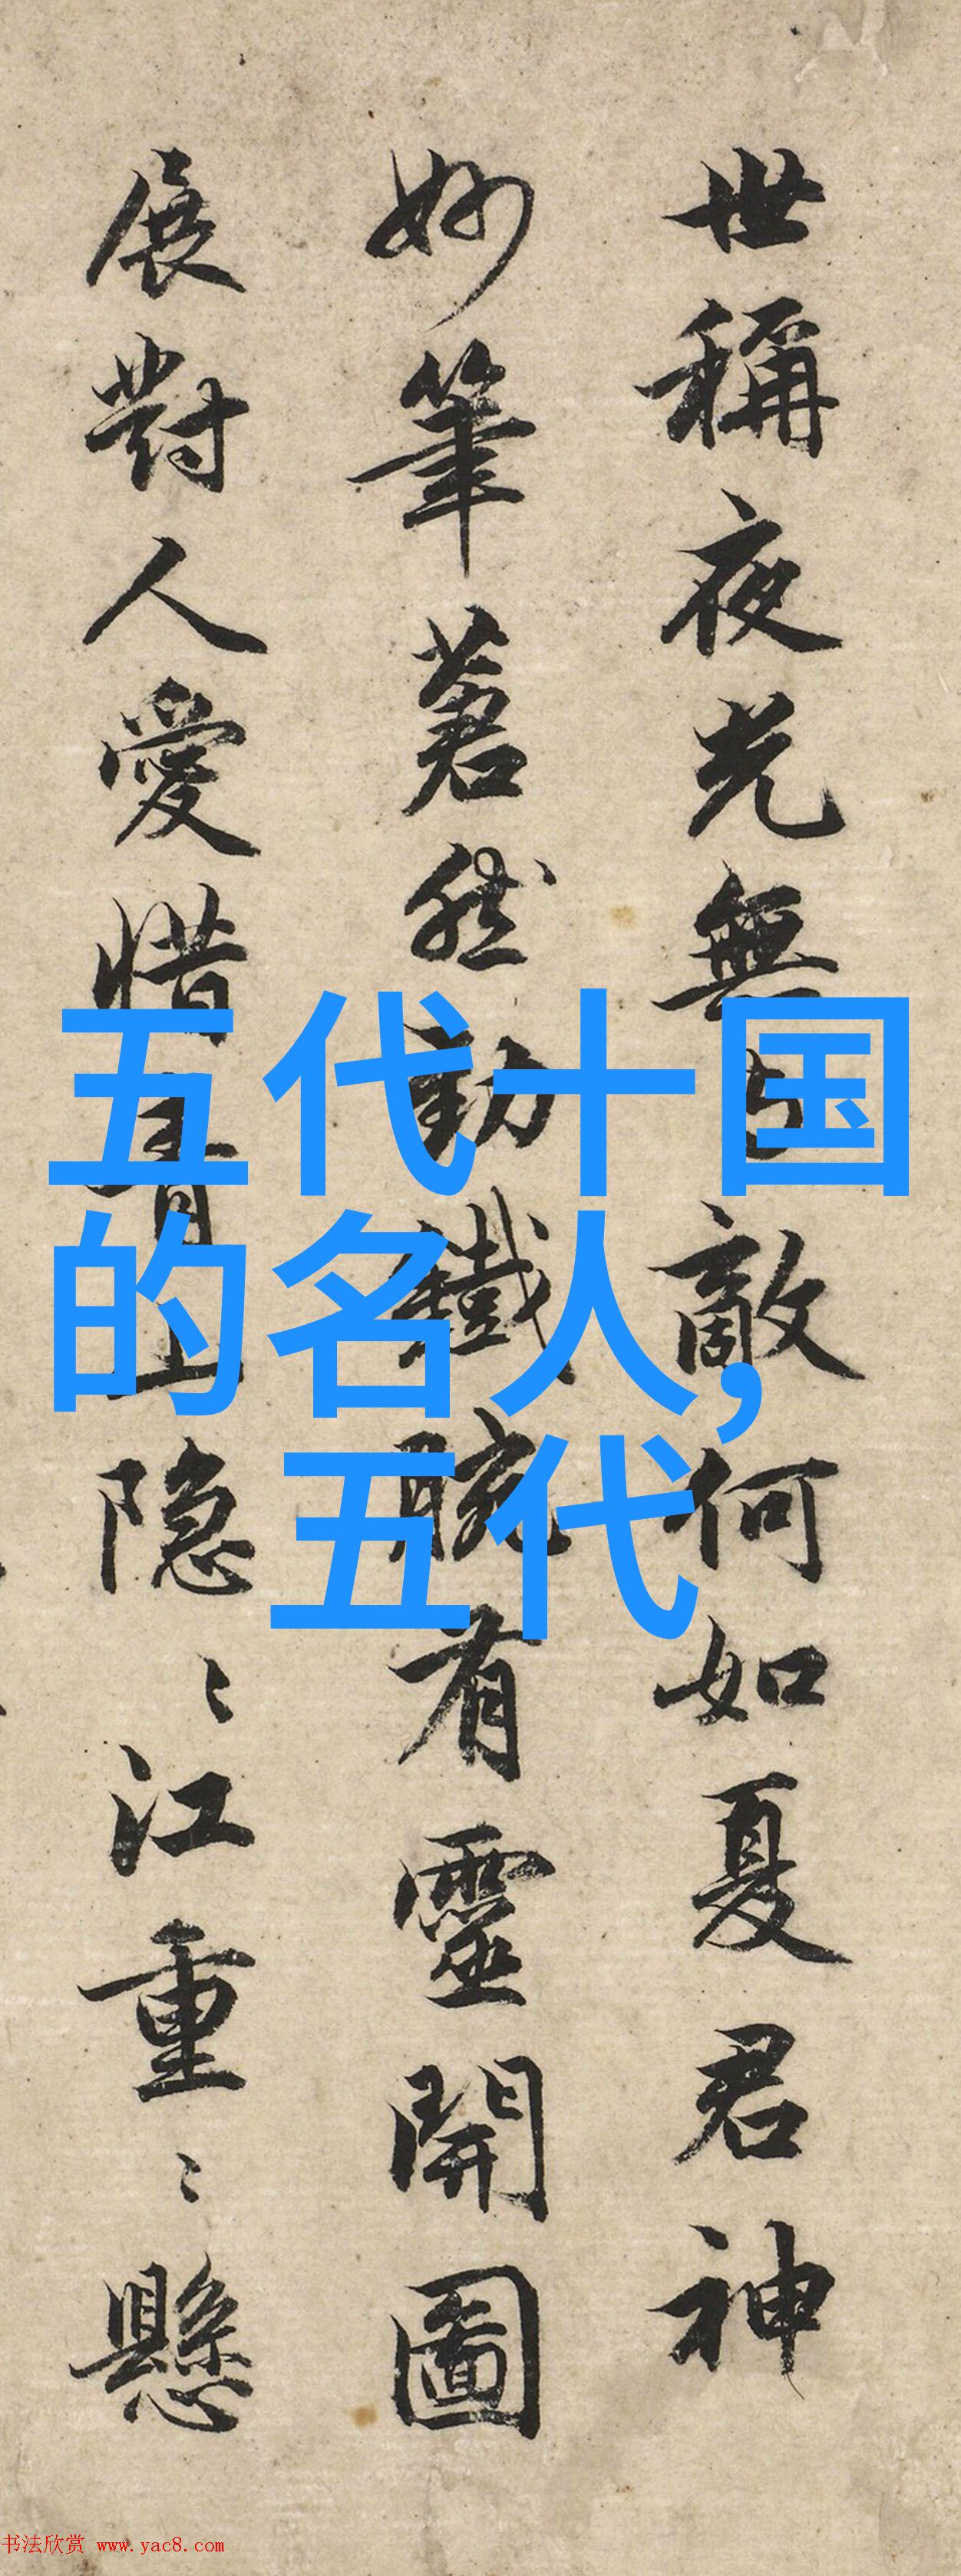 世稱夜光無与敵何如夏君神
妙筆蒼然勁鐵腕有靈開圖
展對人愛惜青山隱〻江重〻懸
五代十国
的名人,
五代
书法欣赏 www.yac8.com